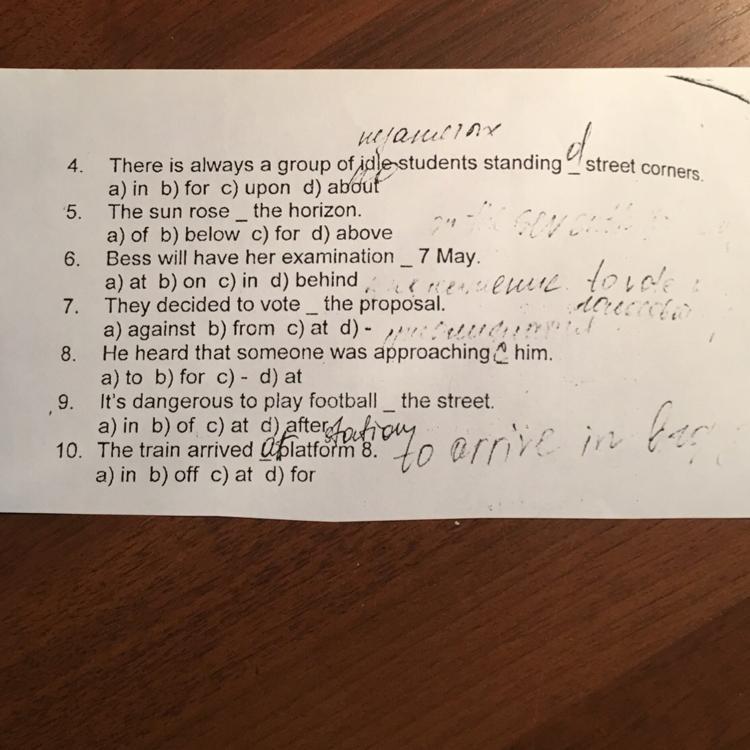 d
4. There is always a group of idle students standing _ street corners.
a) in b) for c) upon d) about
5. The sun rose _ the horizon.
a) of b) below c) for d) above
6. Bess will have her examination _ 7 May.
a) at b) on c) in d) behind to vote
7. They decided to vote _ the proposal.
a) against b) from c) at d) -
8. He heard that someone was approaching c him.
a) to b) for c) - d) at
9. It's dangerous to play football _ the street.
a) in b) of c) at d) after station
10. The train arrived at platform 8. to arrive in
a) in b) off c) at d) for